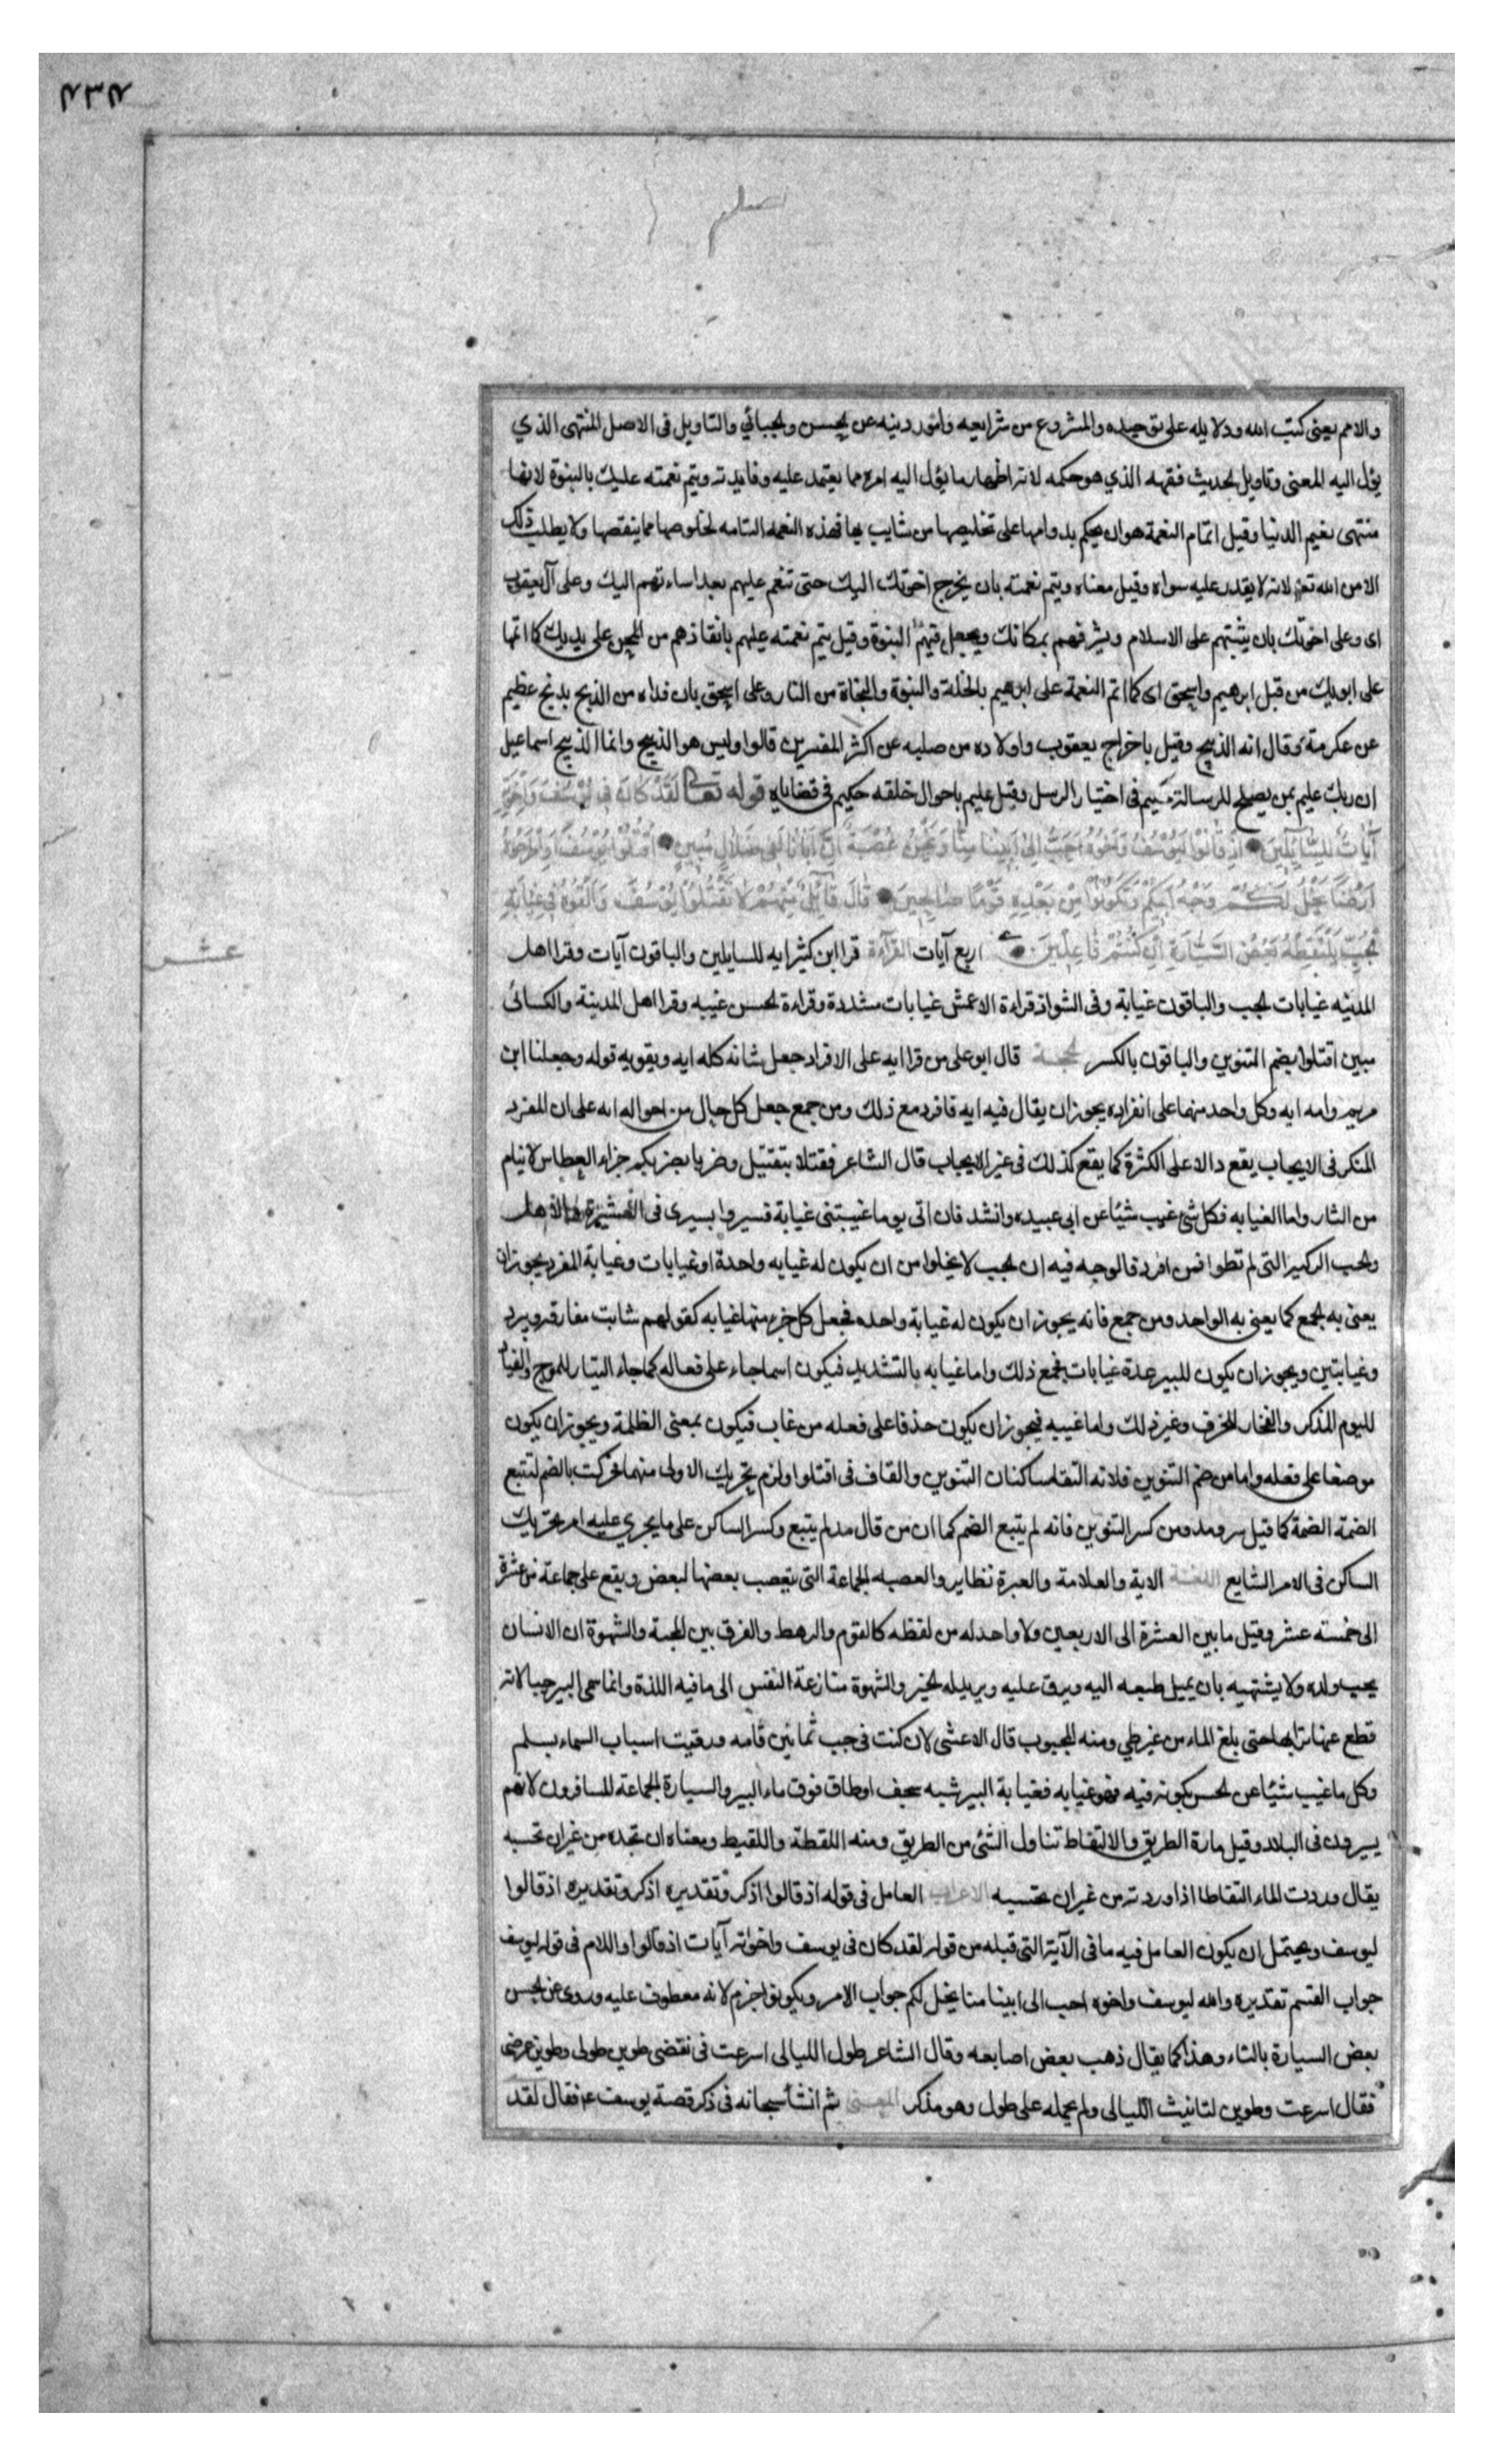 والامم يعنى كتب الله ودلايله على توحيده والمشروع من شرايعه وامور دينه عن الحسن والجبائي والتاويل فى الاصل المنتهى الذي
يؤل اليه المعنى وتاويل الحديث فقهه الذي هو حكمه لانه اظهار ما يؤل اليه امره مما يعتمد عليه وفايدته ويتم نعمته عليك بالنبوة لانها
منتهى نعيم الدنيا وقيل اتمام النعمة هو ان يحكم بدوامها على تخليصها من شايب بها فهذه النعمة التامه لخلوصها مما ينقصها ولا يطلب ذلك
الا من الله تع لانه لا يقدر عليه سواه وقيل معناه ويتم نعمته بان يخرج اخوتك اليك حتى تنعم عليهم بعد اساءتهم اليك وعلى آل يعقوب
اى وعلى اخوتك بان يثبتهم على الاسلام ويشرفهم بمكانك ويجعل فيهم النبوة وقيل يتم نعمته عليهم بانقاذهم من المحن على يديك كما اتمها
على ابويك من قبل ابرهيم واسحق اى كما اتم النعمة على ابرهيم بالخلة والنبوة والنجاة من النار وعلى اسحق بان فداه من الذبح بذبح عظيم
عن عكرمة وقال انه الذبيح وقيل باخراج يعقوب واولاده من صلبه عن اكثر المفسرين قالوا وليس هو الذبيح وانما الذبيح اسماعيل
ان ربك عليم بمن يصلح للرسالة حكيم فى اختيار الرسل وقيل عليم باحوال خلقه حكيم فى قضاياه قوله تعالى لَقَدْ كَانَ فِي يُوسُفَ وَاِخْوَتِهِ
آيَاتٌ لِلسَّايِلِينَ اِذْ قَالُوا لَيُوسُفُ وَاَخُوهُ اَحَبُّ اِلَى اَبِينَا مِنَّا وَنَحْنُ عُصْبَةٌ اِنَّ اَبَانَا لَفِى ضَلَالٍ مُبِينٍ اُقْتُلُوا يُوسُفَ اَوِ اطْرَحُوهُ
اَرْضًا يَخْلُ لَكُمْ وَجْهُ اَبِيكُمْ وَتَكُونُوا مِنْ بَعْدِهِ قَوْمًا صَالِحِينَ قَالَ قَائِلٌ مِنْهُمْ لَا تَقْتُلُوا يُوسُفَ وَاَلْقُوهُ فِى غَيَابَةِ
الْجُبِّ يَلْتَقِطْهُ بَعْضُ السَّيَّارَةِ اِنْ كُنْتُمْ فَاعِلِينَ اربع آيات القراءة قرا ابن كثير ايه للسايلين والباقون آيات وقرا اهل
عشر
المدينه غيابات الجب والباقون غيابة وفى الشواذ قراءة الاعمش غيابات مشددة وقراءة الحسن غيبه وقرا اهل المدينة والكسائى
مبين اقتلوا بضم التنوين والباقون بالكسر الحجة قال ابو على من قرا ايه على الافراد جعل شانه كله ايه ويقويه قوله وجعلنا ابن
مريم وامه ايه وكل واحد منهما على انفراده يجوز ان يقال فيه ايه فافرد مع ذلك ومن جمع جعل كل حال من احواله ايه على ان المفرد
المنكر فى الايجاب يقع دالا على الكثرة كما يقع كذلك فى غير الايجاب قال الشاعر فقتلا بتقتيل وضربا بضربكم جزاء العطاس لا ينام
من الثار واما الغيابه فكل شئ غيب شيئا عن ابى عبيده وانشد فان اتى يوما غيبتنى غيابة فسيروا بسيرى فى العشيرة والاهل
والجب الركية التى لم تطوا فمن افرد فالوجه فيه ان الجب لا يخلوا من ان يكون له غيابه واحدة او غيابات وغيابة المفرد يجوز ان
يعنى به الجمع كما يعنى به الواحد ومن جمع فانه يجوز ان يكون له غيابة واحده فجعل كل جزء منها غيابه كقولهم شابت مفارقه ويرد
وغيابتين ويجوز ان يكون للبير عدة غيابات فجمع ذلك واما غيابه بالتشديد فيكون اسما جاء على فعاله كما جاء التيار للموج والفياد
لليوم المذكر والفخار للخزف وغير ذلك واما غيبه فيجوز ان يكون حذفا على فعله من غاب فيكون بمعنى الظلمة ويجوز ان يكون
موضعا على فعله واما من ضم التنوين فلانه التقا ساكنان التنوين والقاف فى اقتلوا ولزم تحريك الاولى منهما فحركت بالضم لتتبع
الضمة الضمة كما قيل سر ومد ومن كسر التنوين فانه لم يتبع الضم كما ان من قال مد لم يتبع وكسر الساكن على ما يجري عليه امر تحريك
الساكن فى الامر الشايع اللغة الاية والعلامة والعبرة نظاير والعصبه الجماعة التى يتعصب بعضها لبعض ويقع على جماعة من عشرة
الى خمسة عشر وقيل ما بين العشرة الى الاربعين ولا واحد له من لفظه كالقوم والرهط والفرق بين المحبة والشهوة ان الانسان
يحب ولده ولا يشتهيه بان يميل طبعه اليه ويرق عليه ويريد له الخير والشهوة منازعة النفس الى ما فيه اللذة وانما سمى البير جبا لانه
قطع عنها ترابها حتى بلغ الماء من غير طي ومنه المجبوب قال الاعشى لان كنت فى جب ثمانين قامه ورقيت اسباب السماء بسلم
وكل ما غيب شيئا عن الحس بكونه فيه فهو غيابه فغيابة البير شبه لجف او طاق فوق ماء البير والسيارة الجماعة المسافرون لانهم
يسيرون فى البلاد وقيل مارة الطريق والالتقاط تناول الشئ من الطريق ومنه اللقطة واللقيط ومعناه ان تجده من غير ان تحسبه
يقال وردت الماء التقاطا اذا وردته من غير ان تحتسبه الاعراب العامل فى قوله اذ قالوا اذكر وتقديره اذكر وتقديره اذ قالوا
ليوسف ويحتمل ان يكون العامل فيه ما فى الآية التى قبله من قوله لقد كان فى يوسف واخوته آيات اذ قالوا واللام فى قوله ليوسف
جواب القسم تقديره والله ليوسف واخوه احب الى ابينا منا يخل لكم جواب الامر ويكونوا جزم لانه معطوف عليه وروى عن الحسن
بعض السيارة بالتاء وهذا كما يقال ذهب بعض اصابعه وقال الشاعر طول الليالى اسرعت فى نقضى طوين طولى وطوين عرضى
فقال اسرعت وطوين لتانيث الليالى ولم يحمله على طول وهو مذكر المعنى ثم انشأ سبحانه فى ذكر قصة يوسف ع فقال لقد